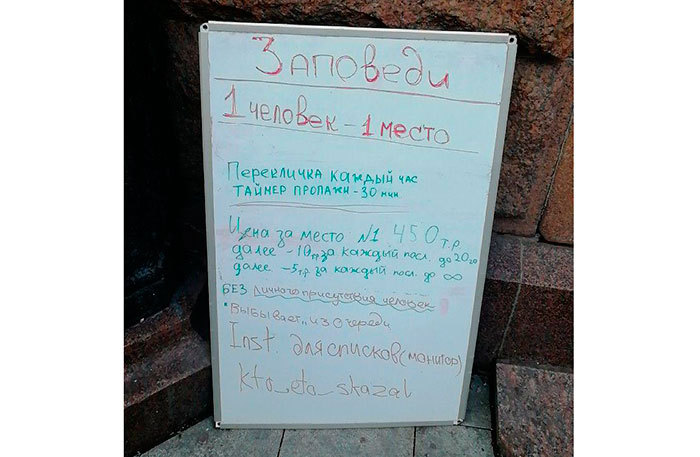 Заповеди
1 человек - 1 место
Перекличка каждый час
Таймер пропажи - 30 мин
Цена за место №1 450 т.р.
далее - 10 тр за каждый посл. до 20го
далее - 5 т.р за каждый посл. до ∞
БЕЗ личного присутствия человек
"Выбывает" из очереди
Inst. для списков (монитор)
kto_eto_skazal